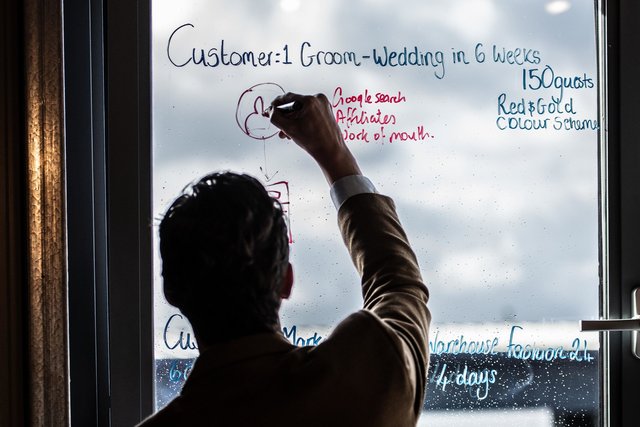 Customer:1 Groom-Wedding in 6 Weeks
150guests
Red & Gold
Colour Scheme
Google search
Affiliates
Work of mouth.
Warehouse Fashion 24
4 days